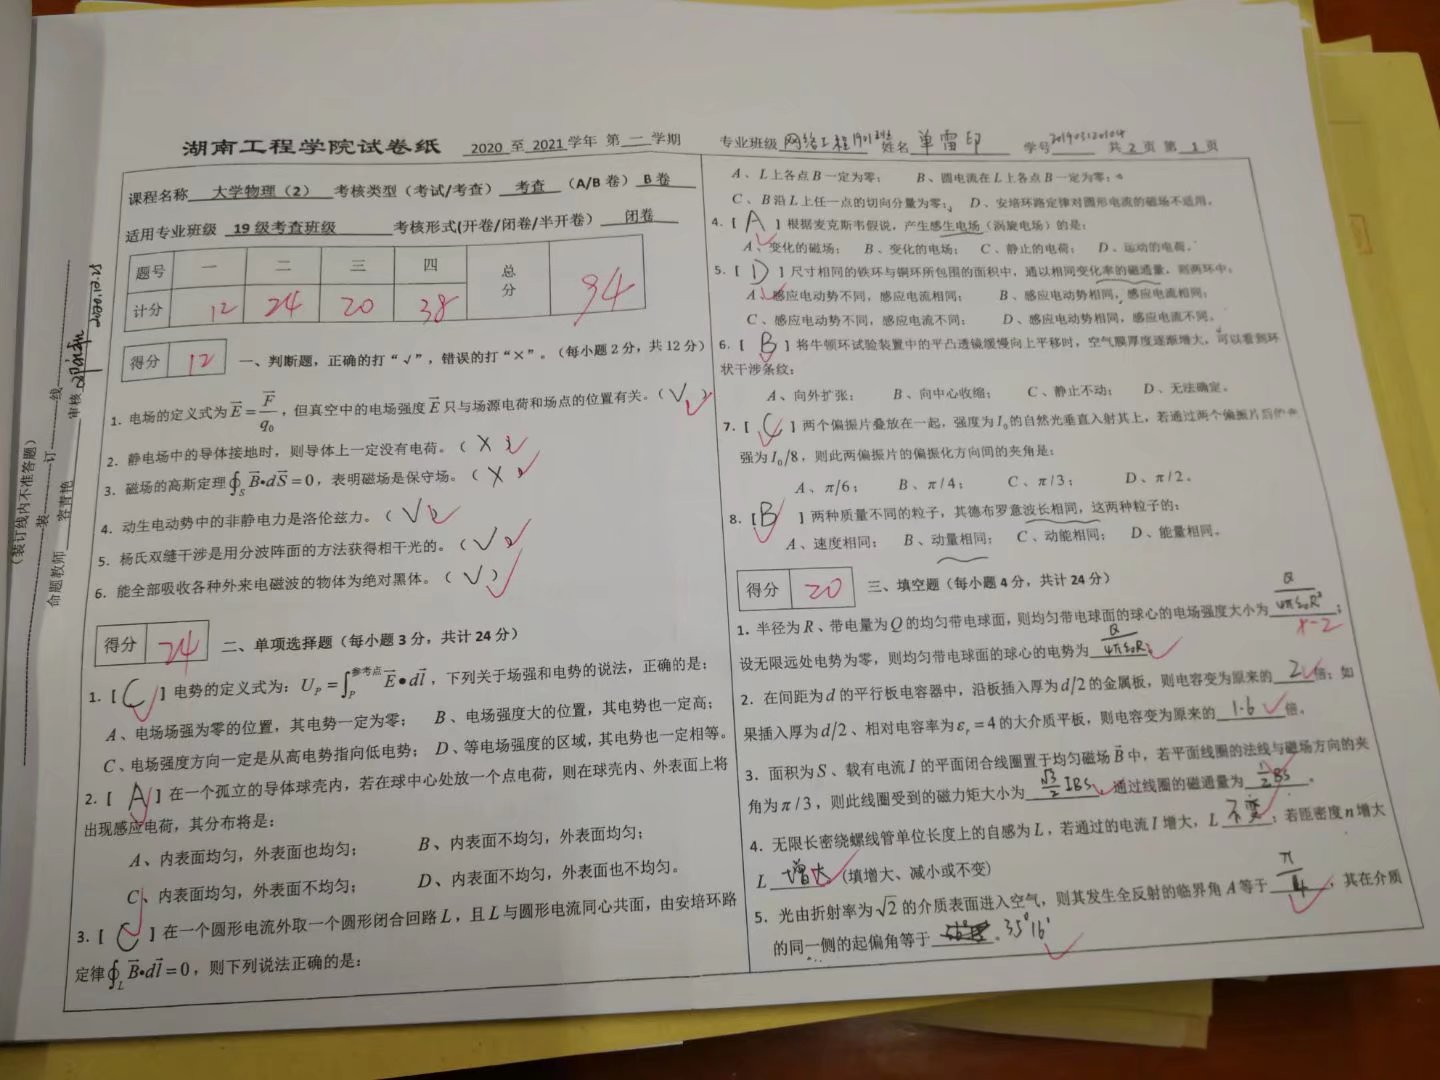 湖南工程学院试卷纸 2020 至 2021 学年 第 二 学期
专业班级 网络工程1901 姓名 单雷印 学号 201903120104 共 2 页 第 1 页
课程名称 大学物理（2） 考核类型（考试/考查） 考查 （A/B 卷） B 卷
适用专业班级 19 级考查班级 考核形式(开卷/闭卷/半开卷） 闭卷
题号 一 二 三 四 总分
计分 12 24 20 38 94
得分 12 一、判断题，正确的打“√”，错误的打“×”。（每小题 2 分，共 12 分）
1. 电场的定义式为 E⃗ = F⃗/q₀，但真空中的电场强度 E⃗ 只与场源电荷和场点的位置有关。（ √ ）
2. 静电场中的导体接地时，则导体上一定没有电荷。（ × ）
3. 磁场的高斯定理 ∮_S B⃗•dS⃗ = 0，表明磁场是保守场。（ × ）
4. 动生电动势中的非静电力是洛伦兹力。（ √ ）
5. 杨氏双缝干涉是用分波阵面的方法获得相干光的。（ √ ）
6. 能全部吸收各种外来电磁波的物体为绝对黑体。（ √ ）
得分 24 二、单项选择题（每小题 3 分，共计 24 分）
1. [ C ] 电势的定义式为：U_P = ∫_P^参考点 E⃗•dl⃗，下列关于场强和电势的说法，正确的是：
A、电场场强为零的位置，其电势一定为零； B、电场强度大的位置，其电势也一定高；
C、电场强度方向一定是从高电势指向低电势； D、等电场强度的区域，其电势也一定相等。
2. [ A ] 在一个孤立的导体球壳内，若在球中心处放一个点电荷，则在球壳内、外表面上将
出现感应电荷，其分布将是：
A、内表面均匀，外表面也均匀； B、内表面不均匀，外表面均匀；
C、内表面均匀，外表面不均匀； D、内表面不均匀，外表面也不均匀。
3. [ C ] 在一个圆形电流外取一个圆形闭合回路 L，且 L 与圆形电流同心共面，由安培环路
定律 ∮_L B⃗•dl⃗ = 0，则下列说法正确的是：
A、L 上各点 B 一定为零； B、圆电流在 L 上各点 B 一定为零；
C、B 沿 L 上任一点的切向分量为零； D、安培环路定律对圆形电流的磁场不适用。
4. [ A ] 根据麦克斯韦假说，产生感生电场（涡旋电场）的是：
A、变化的磁场； B、变化的电场； C、静止的电荷； D、运动的电荷。
5. [ D ] 尺寸相同的铁环与铜环所包围的面积中，通以相同变化率的磁通量，则两环中：
A、感应电动势不同，感应电流相同； B、感应电动势相同，感应电流相同；
C、感应电动势不同，感应电流不同； D、感应电动势相同，感应电流不同。
6. [ B ] 将牛顿环试验装置中的平凸透镜缓慢向上平移时，空气膜厚度逐渐增大，可以看到环
状干涉条纹：
A、向外扩张； B、向中心收缩； C、静止不动； D、无法确定。
7. [ C ] 两个偏振片叠放在一起，强度为 I₀ 的自然光垂直入射其上，若通过两个偏振片后的光
强为 I₀/8，则此两偏振片的偏振化方向间的夹角是：
A、π/6； B、π/4； C、π/3； D、π/2。
8. [ B ] 两种质量不同的粒子，其德布罗意波长相同，这两种粒子的：
A、速度相同； B、动量相同； C、动能相同； D、能量相同。
得分 20 三、填空题（每小题 4 分，共计 24 分）
1. 半径为 R、带电量为 Q 的均匀带电球面，则均匀带电球面的球心的电场强度大小为 Q/4πε₀R² ； ×-2
设无限远处电势为零，则均匀带电球面的球心的电势为 Q/4πε₀R 。
2. 在间距为 d 的平行板电容器中，沿板插入厚为 d/2 的金属板，则电容变为原来的 2 倍；如
果插入厚为 d/2、相对电容率为 εᵣ = 4 的大介质平板，则电容变为原来的 1.6 倍。
3. 面积为 S、载有电流 I 的平面闭合线圈置于均匀磁场 B⃗ 中，若平面线圈的法线与磁场方向的夹
角为 π/3，则此线圈受到的磁力矩大小为 √3/2 IBS ，通过线圈的磁通量为 1/2 BS 。
4. 无限长密绕螺线管单位长度上的自感为 L，若通过的电流 I 增大，L 不变 ；若匝密度 n 增大
L 增大 。（填增大、减小或不变）
5. 光由折射率为 √2 的介质表面进入空气，则其发生全反射的临界角 A 等于 π/4 ，其在介质
的同一侧的起偏角等于 。35°16'
（装订线内不准答题）
装 订 线
命题教师 容青艳 审核